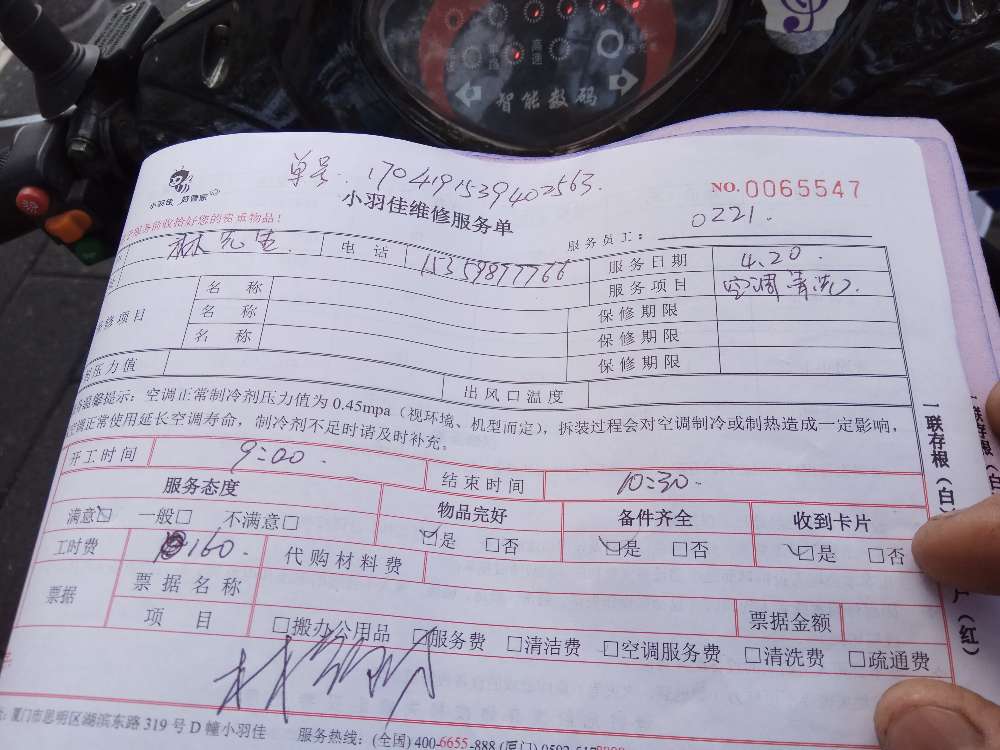 高速
智能数码
单号:170419153940 2563.
小羽佳 好管家
小羽佳维修服务单
NO.0065547
服务员工: 0221.
收拾好您的贵重物品!
林先生. 电话 15359897766 服务日期 4.20.
名称 服务项目 空调清洗
修项目 名称 保修期限
名称 保修期限
保修期限
压力值 出风口温度
温馨提示:空调正常制冷剂压力值为0.45mpa(视环境、机型而定),拆装过程会对空调制冷或制热造成一定影响,
调正常使用延长空调寿命,制冷剂不足时请及时补充。
开工时间 9:00. 结束时间 10:30.
服务态度 物品完好 备件齐全 收到卡片
满意☑ 一般□ 不满意□ ☑是 □否 ☑是 □否 ☑是 □否
工时费 160. 代购材料费
票据 票据名称 票据金额
项目 □搬办公用品 □服务费 □清洁费 □空调服务费 □清洗费 □疏通费
厦门市思明区湖滨东路319号D幢小羽佳 服务热线:(全国)400-6655-888(厦门)0592-
一联存根(白)
(红)